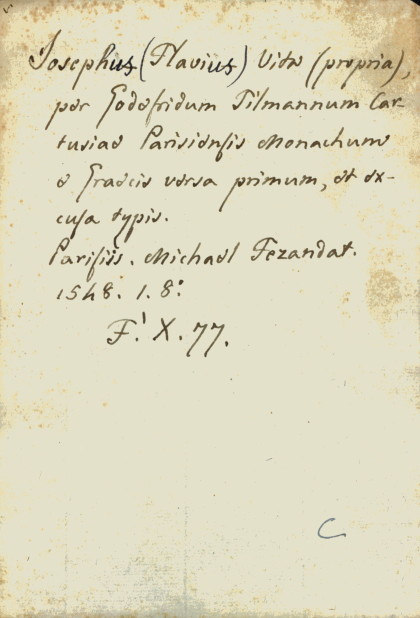 Josephus (Flavius) Vita (propria),
per Godefridum Tilmannum Car-
tusiae Parisiensis Monachum
e Graecis versa primum, et ex-
cusa typis.
Parisiis. Michael Fezandat.
1548. 1. 8:
F! X. 77.
C